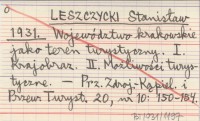 LESZCZYCKI Stanisław
1931. Województwo krakowskie
jako teren turystyczny. I.
Krajobraz. II. Możliwości turys-
tyczne. — Prz. Zdroj.-Kąpiel. i
Przew. Turyst. 20, nr 10: 150-154.